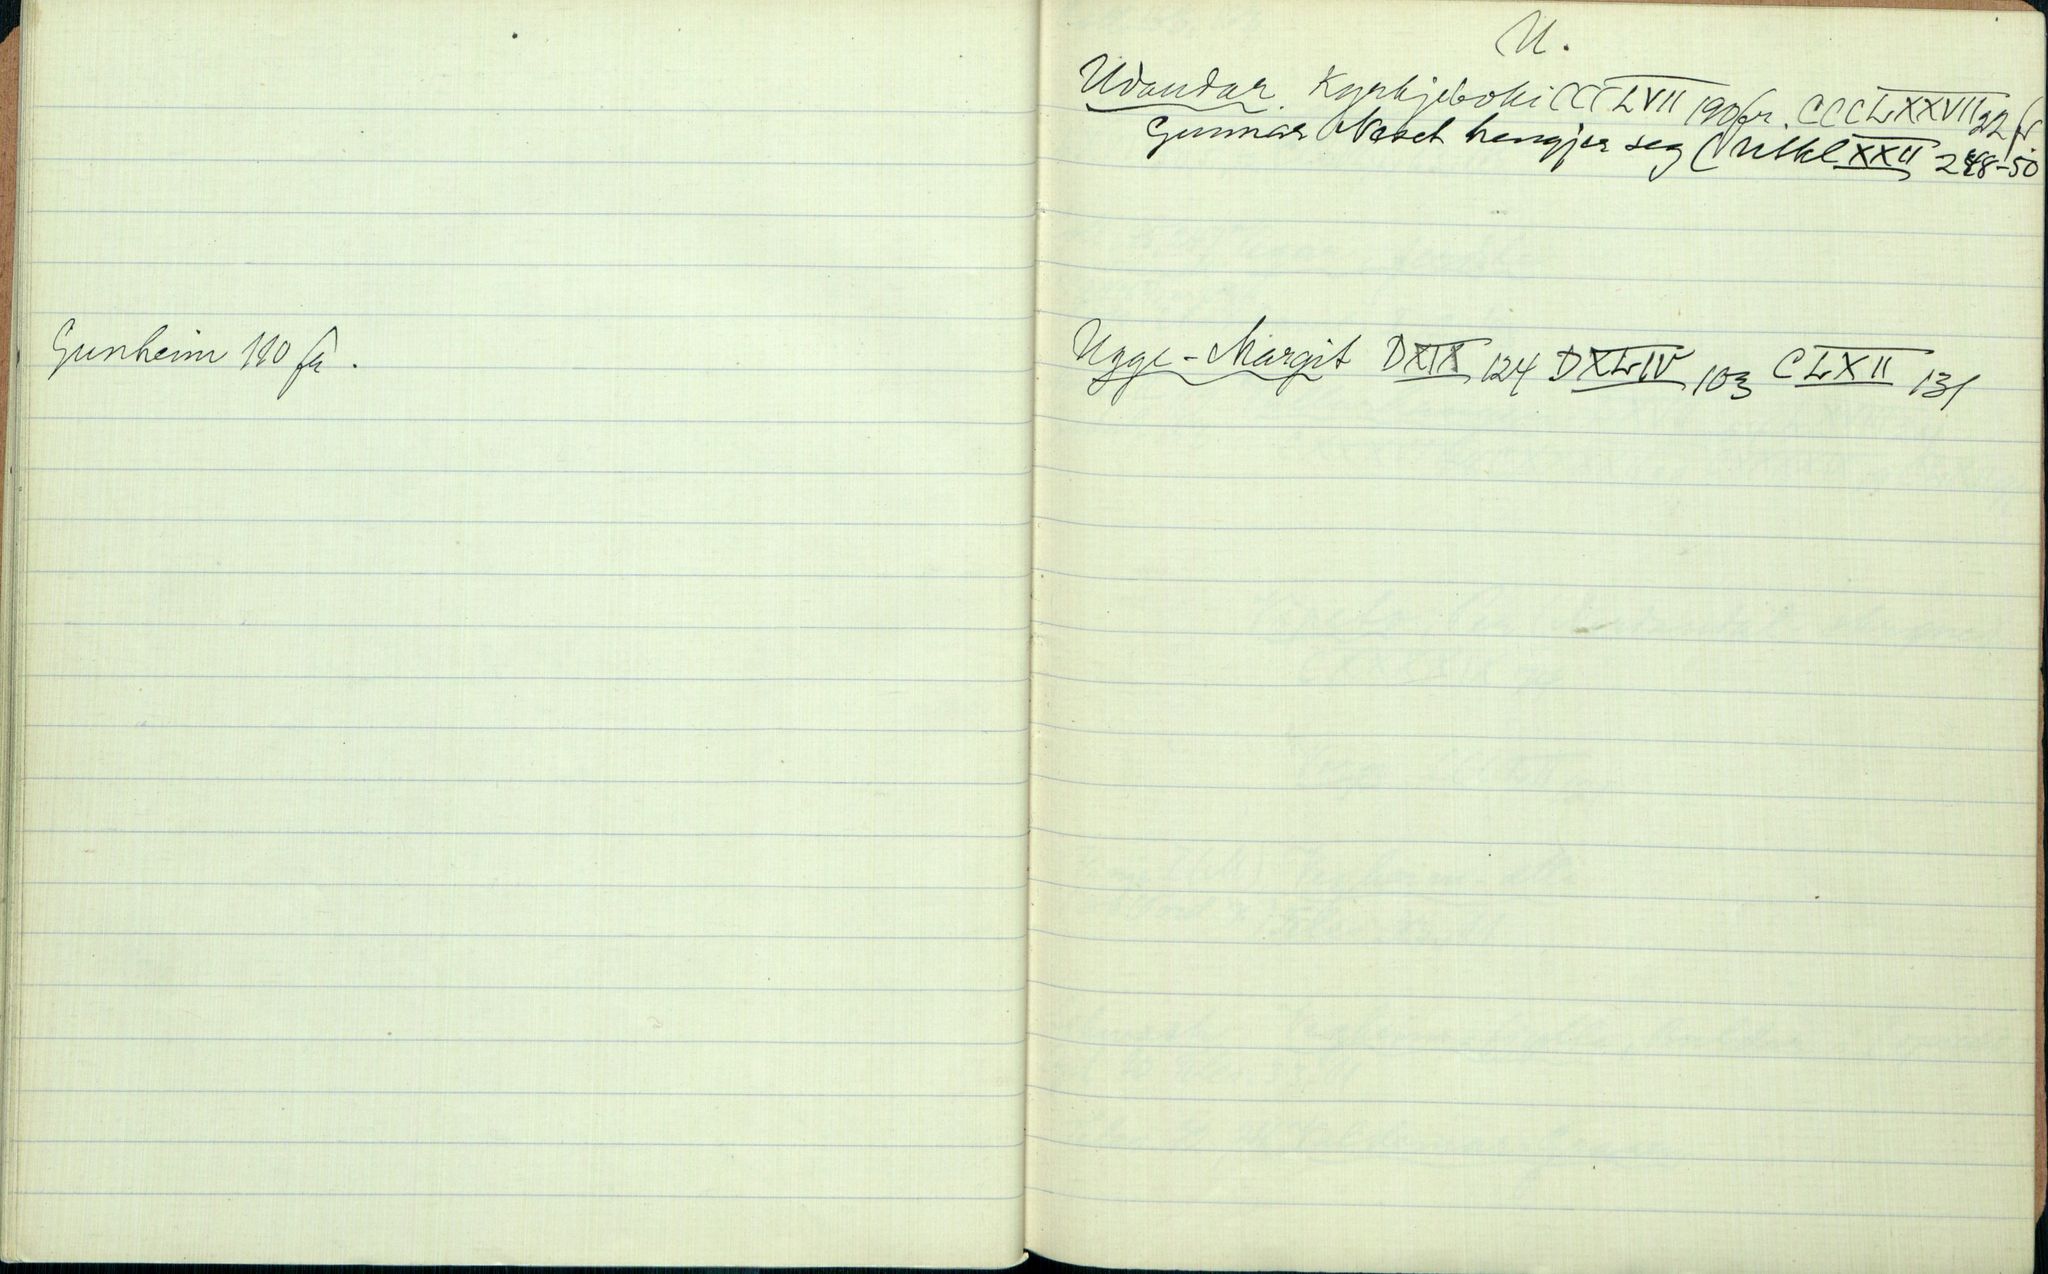 Gunheim 110 fr.
U.
Udaudar. Kyrkjeboki CCCLVII 190 fr. CCCLXXVII 22 fr
Gunnar Neset hengjer seg (Utkl XXII 248-50
Ugge-Margit DXIX 124 DXLIV 103 CLXII 131